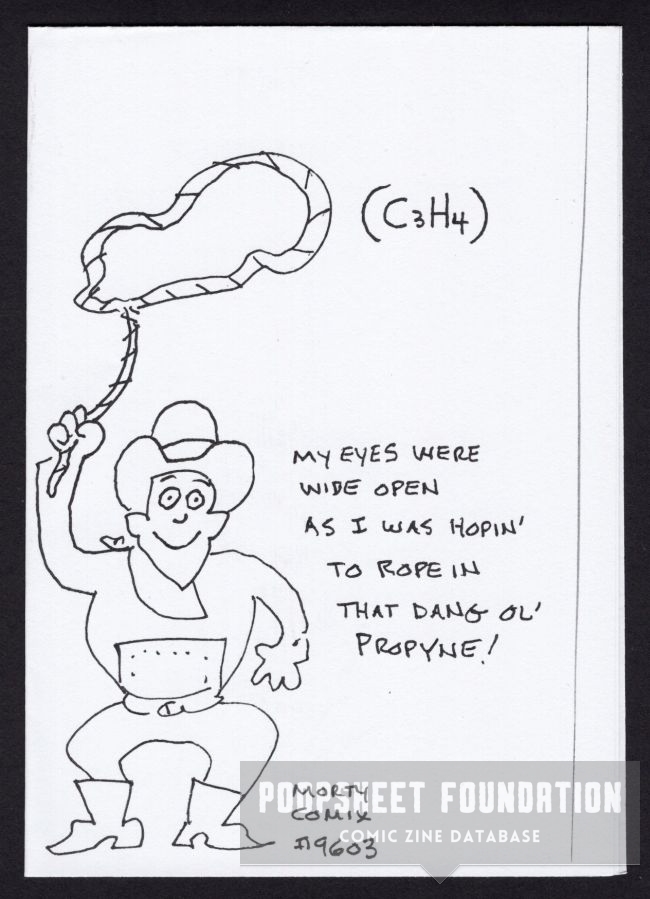 (C3H4)
MY EYES WERE
WIDE OPEN
AS I WAS HOPIN'
TO ROPE IN
THAT DANG OL'
PROPYNE!
MORTY
COMIX
#9603
POOPSHEET FOUNDATION
COMIC ZINE DATABASE